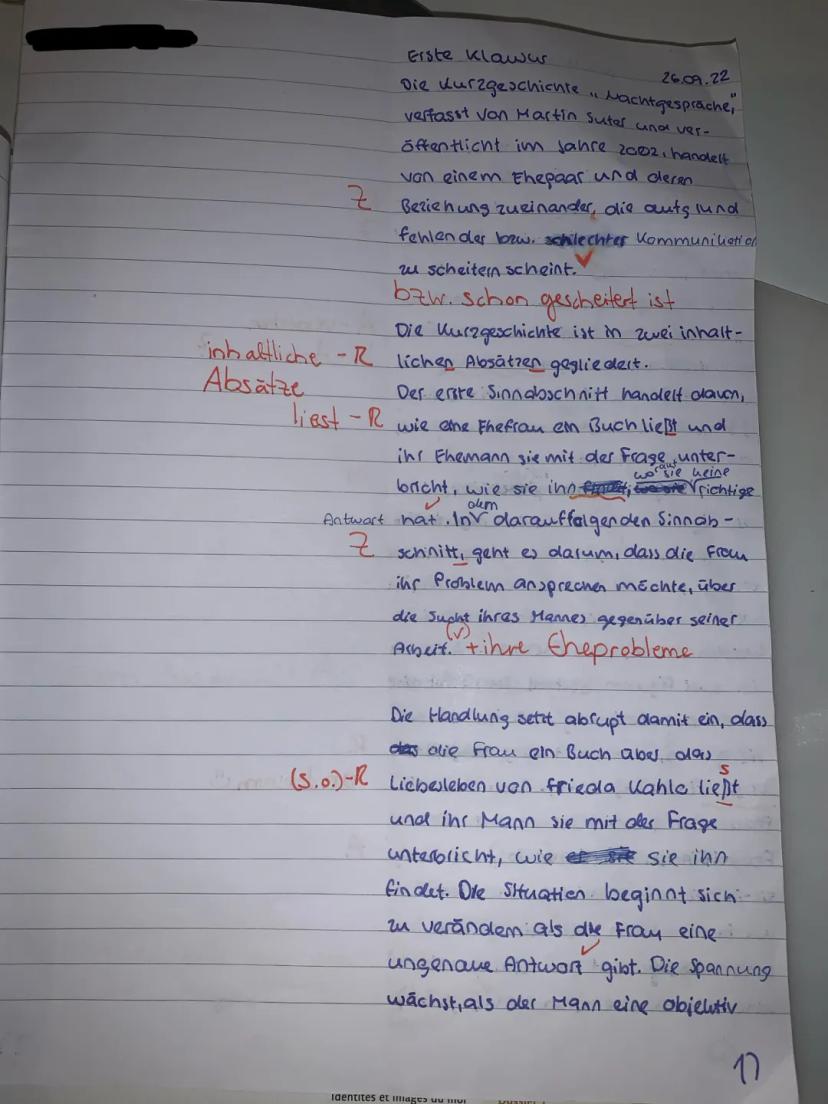 Erste Klausur
26.09.22
Die Kurzgeschichte „Nachtgespräche,"
verfasst von Martin Suter und ver-
öffentlicht im Jahre 2002, handelt
von einem Ehepaar und deren
Z Beziehung zueinander, die aufgrund
fehlender bzw. schlechter Kommunikation
zu scheitern scheint. ✓
bzw. schon gescheitert ist
Die Kurzgeschichte ist in zwei inhalt-
inhaltliche - R lichen Absätzen gegliedert.
Absätze Der erste Sinnabschnitt handelt davon,
liest - R wie eine Ehefrau ein Buch ließt und
ihr Ehemann sie mit der Frage unter-
bricht, wie sie ihn worauf sie keine richtige
Antwort hat. In dem darauffolgenden Sinnab-
Z schnitt, geht es darum, dass die Frau
ihr Problem ansprechen möchte, über
die Sucht ihres Mannes gegenüber seiner
Arbeit. (✓) + ihre Eheprobleme
Die Handlung setzt abrupt damit ein, dass
das die Frau ein Buch über das
(s.o.)-R Liebesleben von Frieda Kahlo ließt s
und ihr Mann sie mit der Frage
unterbricht, wie sie ihn
findet. Die Situation beginnt sich
zu verändern als die Frau eine
ungenaue Antwort ✓ gibt. Die Spannung
wächst, als der Mann eine objektiv
1)
Identités et images du moi